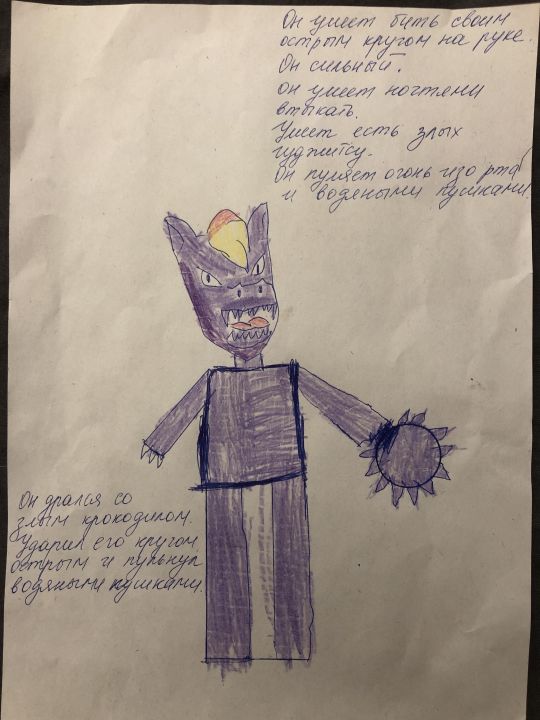 Он умеет бить своим
острым кругом на руке.
Он сильный.
Он умеет ногтями
втыкать.
Умеет есть злых
гуджитсу.
Он пуляет огонь изо рта
и водяными пушками.
Он дрался со
злым крокодилом.
Ударил его кругом
острым и пульнул
водяными пушками.